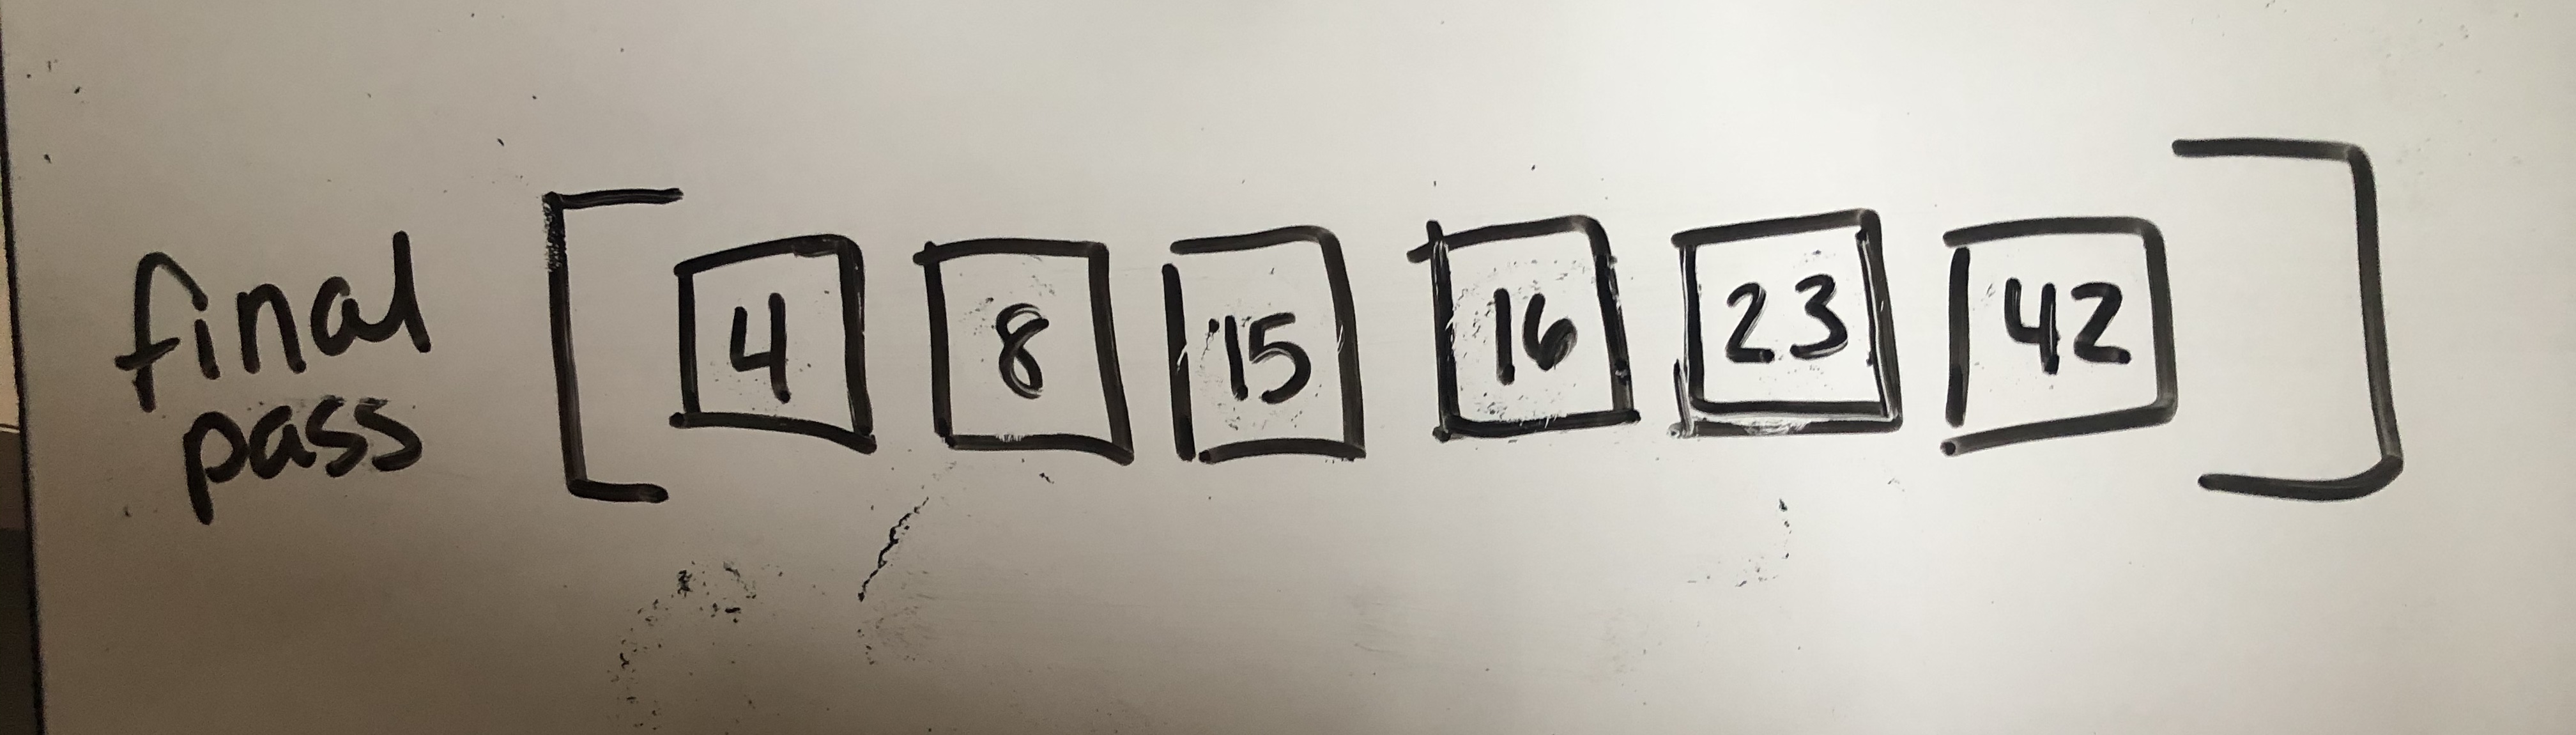 final
pass
[ 4 8 15 16 23 42 ]